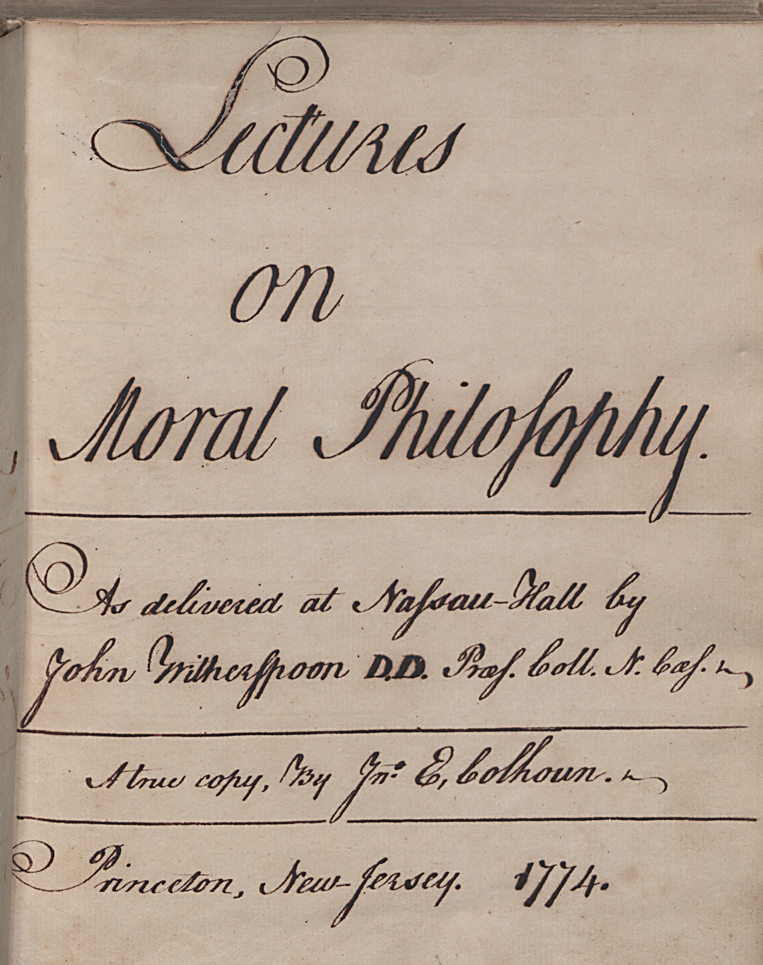 Lectures
on
Moral Philoſophy.
As delivered at Naſsau-Hall by
John Witherſpoon D.D. Præſ. Coll. N. Cæſ.
A true copy, By Jnº E, Colhoun.
Princeton, New-Jersey. 1774.